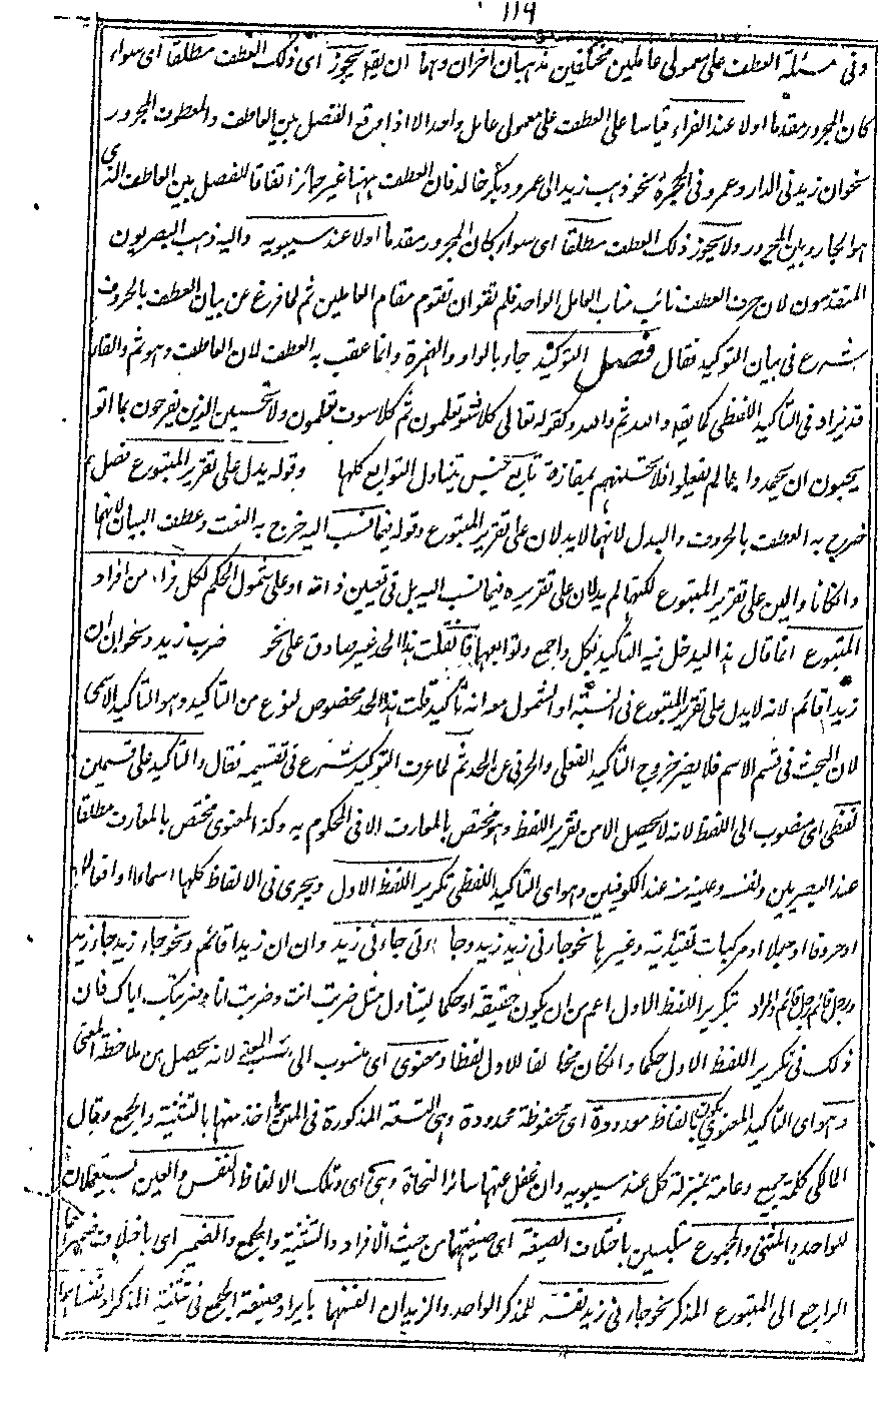 ۱۱۹
وفی مسئلة العطف علی معمولی عاملین مختلفین مذهبان اخران وهما ان یقه یجوز ای ذلک العطف مطلقا ای سواء
کان المجرور مقدما اولا عند الفراء قیاسا علی العطف علی معمولی عامل واحد الا اذا وقع الفصل بین العاطف والمعطوف المجرور
نحو ان زید فی الدار وعمرو فی الحجرة نحو ذهب زید الی عمرو وبکر خالد فان العطف ههنا غیر جائز اتفاقا للفصل بین العاطف الذی
هو الجار وبین المجرور ولا یجوز ذلک العطف مطلقا ای سواء کان المجرور مقدما اولا عند سیبویه والیه ذهب البصریون
المتقدمون لان حرف العطف نائب مناب العامل الواحد فلم تقو ان تقوم مقام العاملین ثم لما فرغ عن بیان العطف بالحروف
شرع فی بیان التوکید فقال فصل التوکید جاء بالواو والهمزة وانما عقب به العطف لان العاطف وهو ثم والفاء
قد یزاد فی التاکید اللفظی کما یقه والله ثم والله وکقوله تعالی کلا سوف تعلمون ثم کلا سوف تعلمون ولا تحسبن الذین یفرحون بما اتوا
یحبون ان یحمدوا بما لم یفعلوا فلا تحسبنهم بمفازة تابع جنس یتناول التوابع کلها وقوله یدل علی تقریر المتبوع فصل
خرج به العطف بالحروف والبدل لانهما لا یدلان علی تقریر المتبوع وقوله فیما نسب الیه خرج به النعت وعطف البیان لانهما
وان کانا دالین علی تقریر المتبوع لکنهما لم یدلان علی تقریره فیما نسب الیه بل فی تعیین ذاته او علی شمول الحکم لکل فرد من افراد
المتبوع انما قال هذا لیدخل فیه التاکید بکل واجمع وتوابعها فان قلت هذا الحد غیر صادق علی نحو ضرب زید ونحو ان ان
زیدا قائم لانه لا یدل علی تقریر المتبوع فی النسبة او الشمول مع انه تاکید قلت هذا الحد مخصوص لنوع من التاکید وهو التاکید الاسمی
لان البحث فی قسم الاسم فلا یضر خروج التاکید الفعلی والحرفی عن الحد ثم لما عرف التوکید شرع فی تقسیمه فقال والتاکید علی قسمین
لفظی ای منسوب الی اللفظ لانه لا یحصل الا من تقریر اللفظ وهو مختص بالمعارف الا فی المحکوم به وکذا المعنوی مختص بالمعارف مطلقا
عند البصریین ونفسه وعینه منه عند الکوفیین وهو ای التاکید اللفظی تکریر اللفظ الاول ویجری فی الالفاظ کلها اسماء او افعالا
او حروفا او جملا او مرکبات تقییدیة وغیرها نحو جاءنی زید زید وجاءنی جاءنی زید وان ان زیدا قائم ونحو جاء زید جاء زید
ورجل قائم رجل قائم والمراد بتکریر اللفظ الاول اعم من ان یکون حقیقة او حکما لیتناول مثل ضربت انت وضربت انا وضربتک ایاک فان
ذلک فی تکریر اللفظ الاول حکما وان کان مخالفا للاول لفظا ومعنوی ای منسوب الی المعنی لانه یحصل من ملاحظة المعنی
وهو ای التاکید المعنوی یکون بالفاظ معدودة ای محفوظة محدودة وهی التسعة المذکورة فی المتن اخذ منها بالتثنیة والجمع وقال
المالکی کلمة جمیع وعامة بمنزلة کل عند سیبویه وان غفل عنها سائر النحاة وهی ای وتلک الالفاظ النفس والعین یستعملان
للواحد والمثنی والمجموع متلبسین باختلاف الصیغة ای صیغتهما من حیث الافراد والتثنیة والجمع والضمیر ای باختلاف ضمیرهما
الراجع الی المتبوع المذکر نحو جاءنی زید نفسه للمذکر الواحد والزیدان انفسهما بایراد صیغة الجمع فی تثنیة المذکر او نفساهما